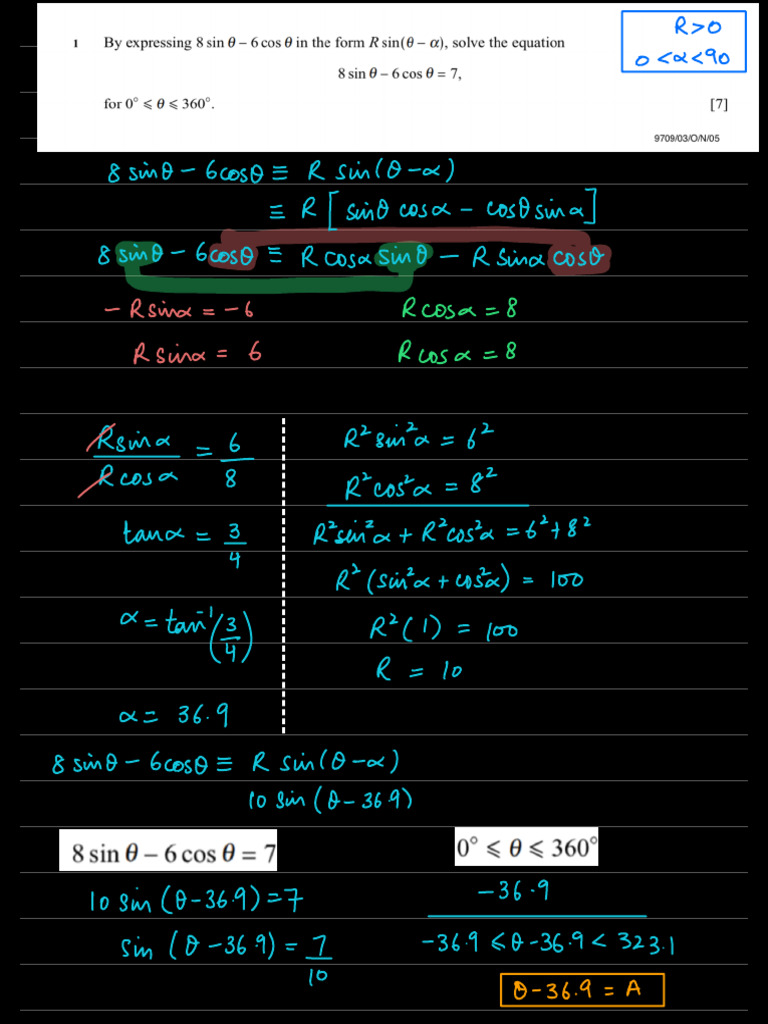 R>0
0<α<90
1 By expressing 8 sin θ – 6 cos θ in the form R sin(θ – α), solve the equation
8 sin θ – 6 cos θ = 7,
for 0° ⩽ θ ⩽ 360°. [7]
9709/03/O/N/05
8 sinθ – 6cosθ ≡ R sin(θ-α)
≡ R [ sinθ cosα – cosθ sinα]
8 sinθ – 6cosθ ≡ R cosα sinθ – R sinα cosθ
– R sinα = – 6 R cosα = 8
R sinα = 6 R cosα = 8
Rsinα / Rcosα = 6/8
tanα = 3/4
α = tan⁻¹(3/4)
α = 36.9
R²sin²α = 6²
R²cos²α = 8²
R²sin²α + R²cos²α = 6²+8²
R²(sin²α + cos²α) = 100
R²(1) = 100
R = 10
8 sinθ – 6cosθ ≡ R sin(θ-α)
10 sin(θ – 36.9)
8 sin θ – 6 cos θ = 7
10 sin (θ-36.9) = 7
sin (θ-36.9) = 7/10
0° ⩽ θ ⩽ 360°
-36.9
-36.9 ⩽ θ - 36.9 < 323.1
θ - 36.9 = A